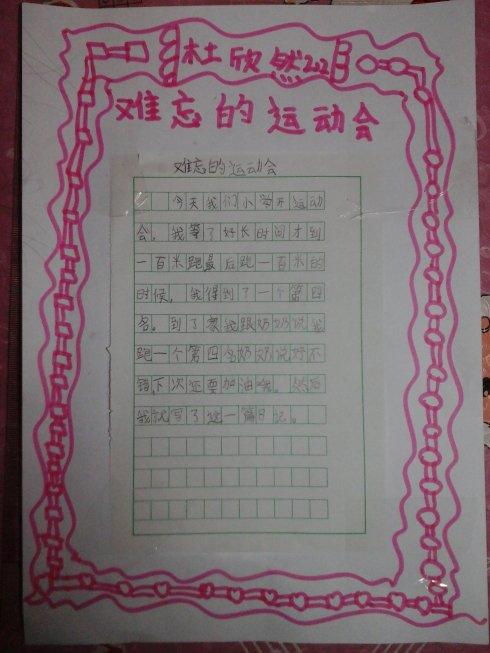 杜欣然2.2
难忘的运动会
难忘的运动会
今天我们小学开运动
会。我等了好长时间才到
一百米跑最后跑一百米的
时候，我得到了一个第四
名。到了家我跟奶奶说我
跑一个第四名奶奶说好不
错，下次还要加油哦。然后
我就写了这一篇日记。